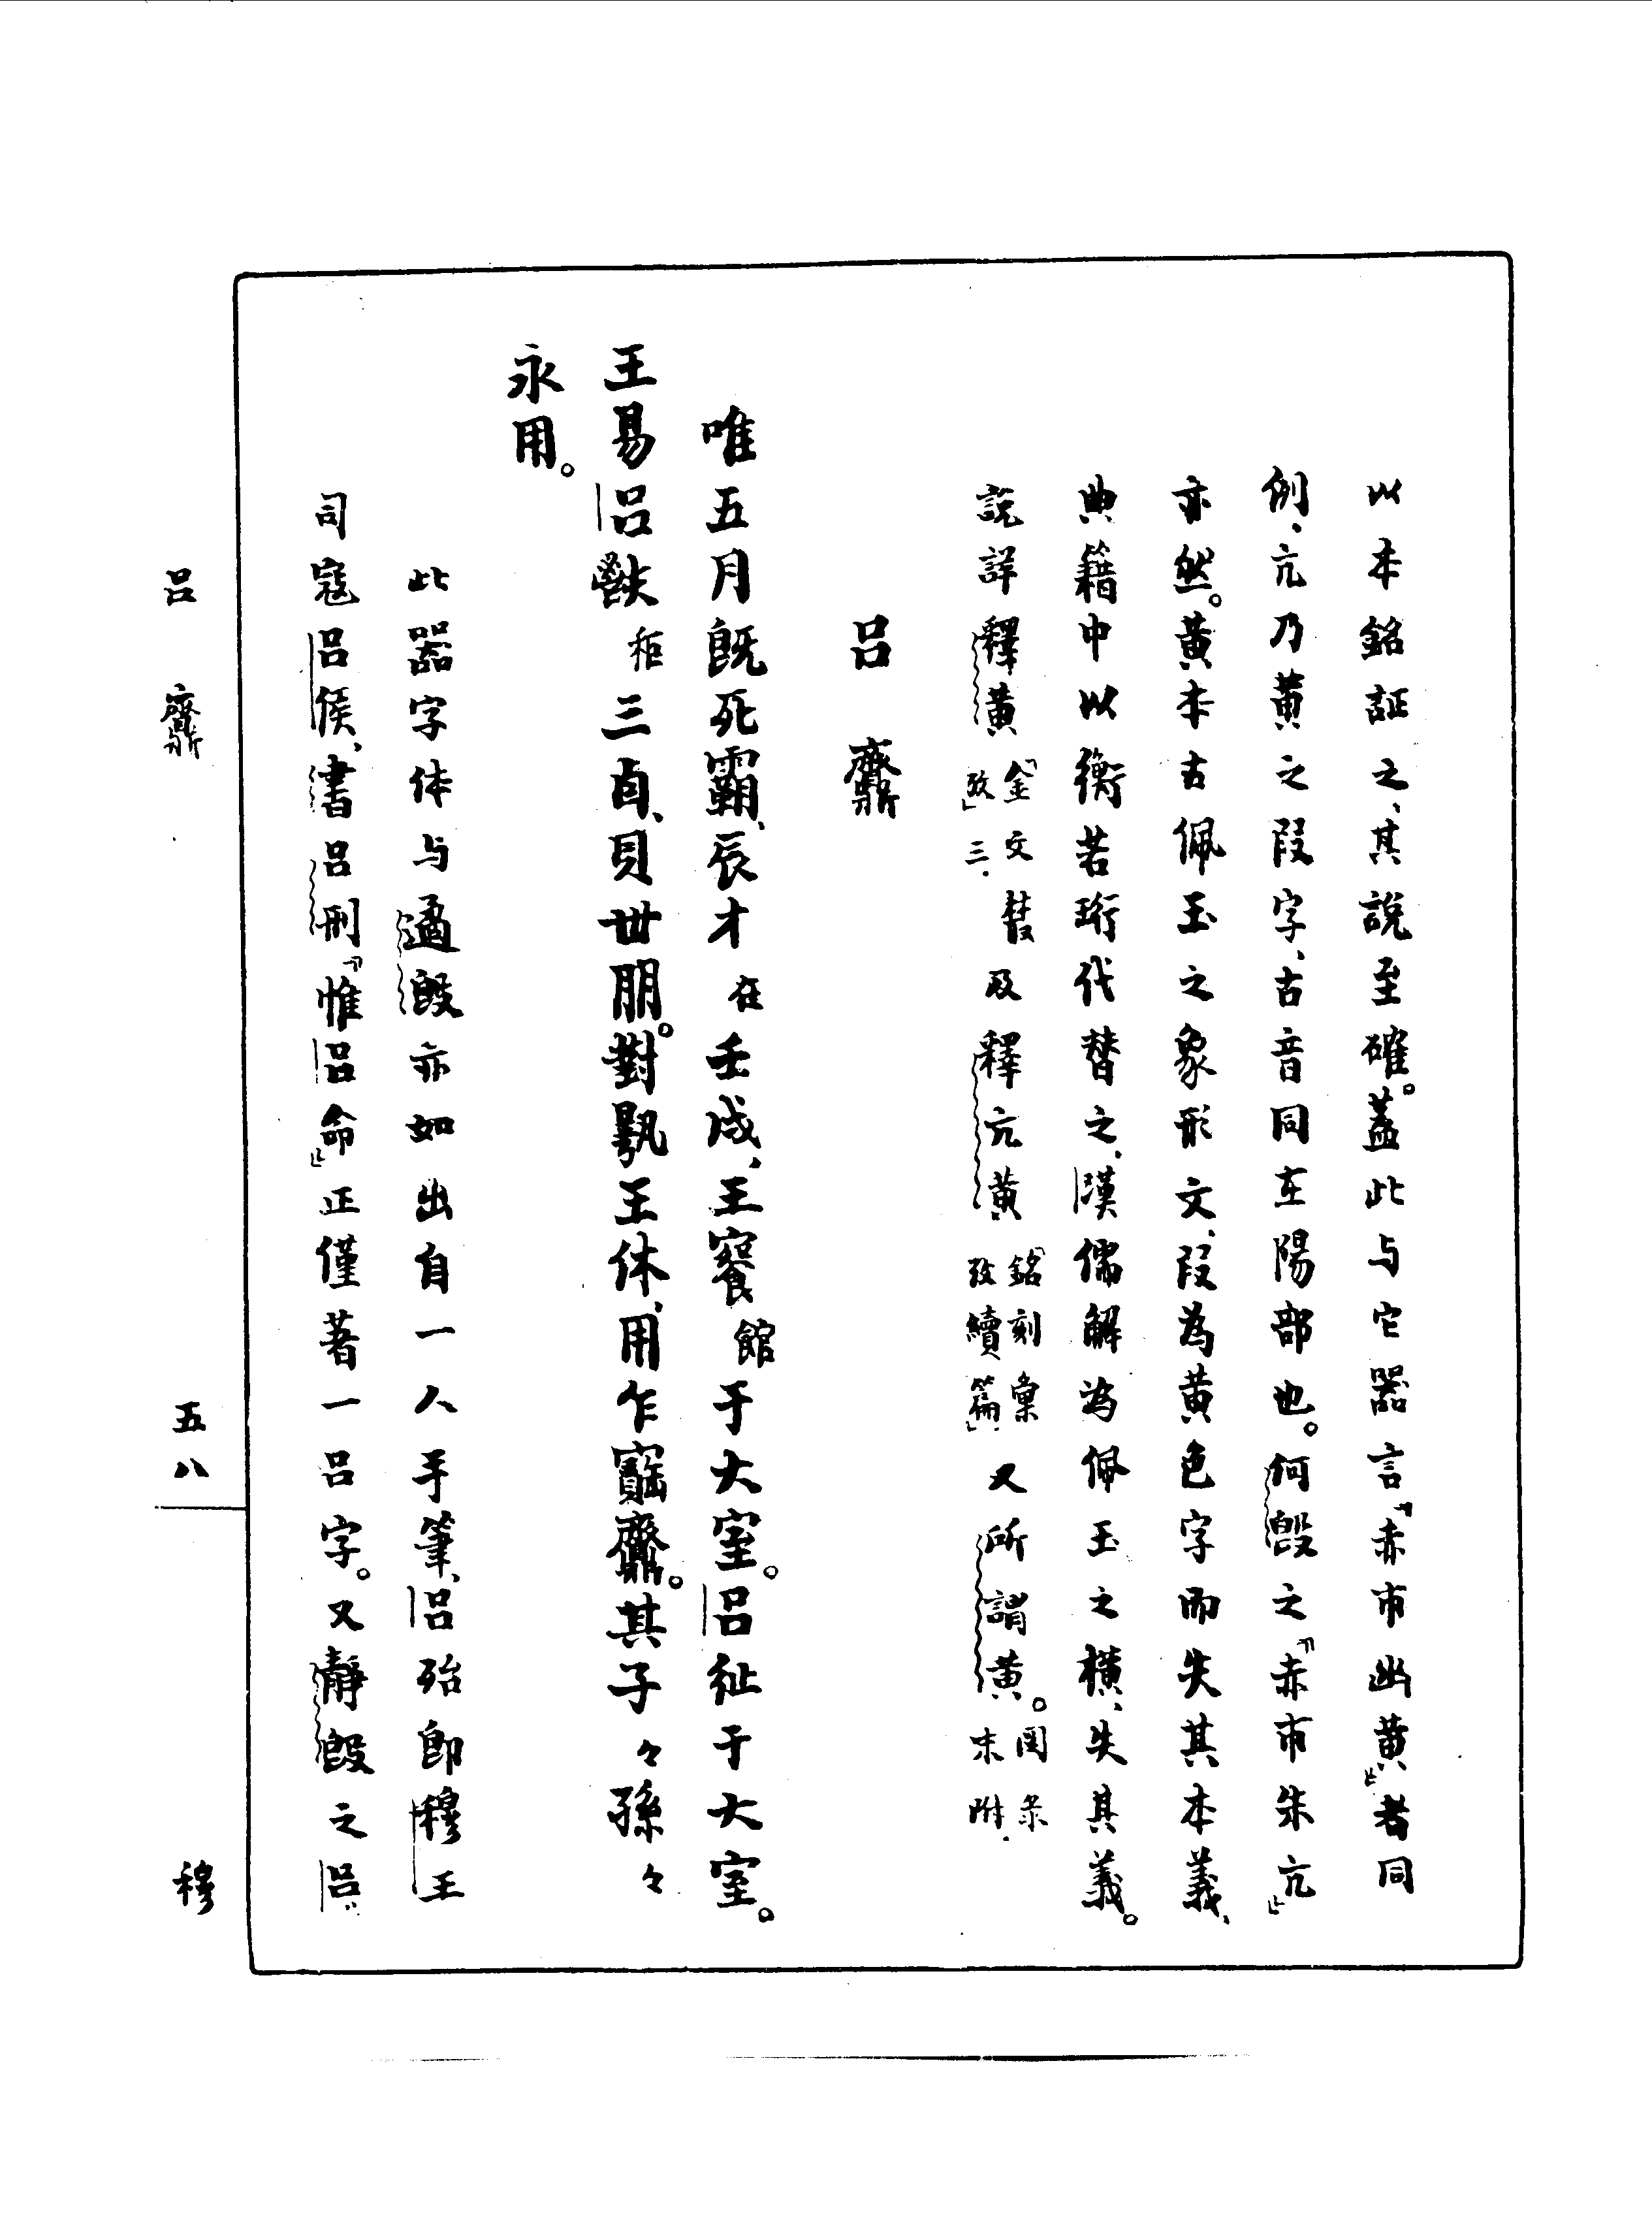 以本銘証之、其說至確。蓋此与它器言「赤巿幽黄」者同
例、亢乃黄之叚字、古音同在陽部也。何𣪘之「赤巿朱亢」
亦然。黄本古佩玉之象形文、叚為黄色字而失其本義、
典籍中以衡若珩代替之、漢儒解為佩玉之橫、失其義。
說詳釋黄「金文叢攷」三.及釋亢黄「銘刻彙攷續篇」.又所謂黄。圖彔末附.
吕𪔉
唯五月既死霸、辰才在壬戌、王饗館于大室。吕𢓊于大室。
王易吕秬三卣、貝卅朋。對揚王休、用乍寶𪔉。其子々孫々
永用。
此器字体与遹𣪘亦如出自一人手筆、吕殆即穆王
司寇吕侯、書吕刑「惟吕命」正僅著一吕字。又靜𣪘之吕、
吕𪔉
五八
穆